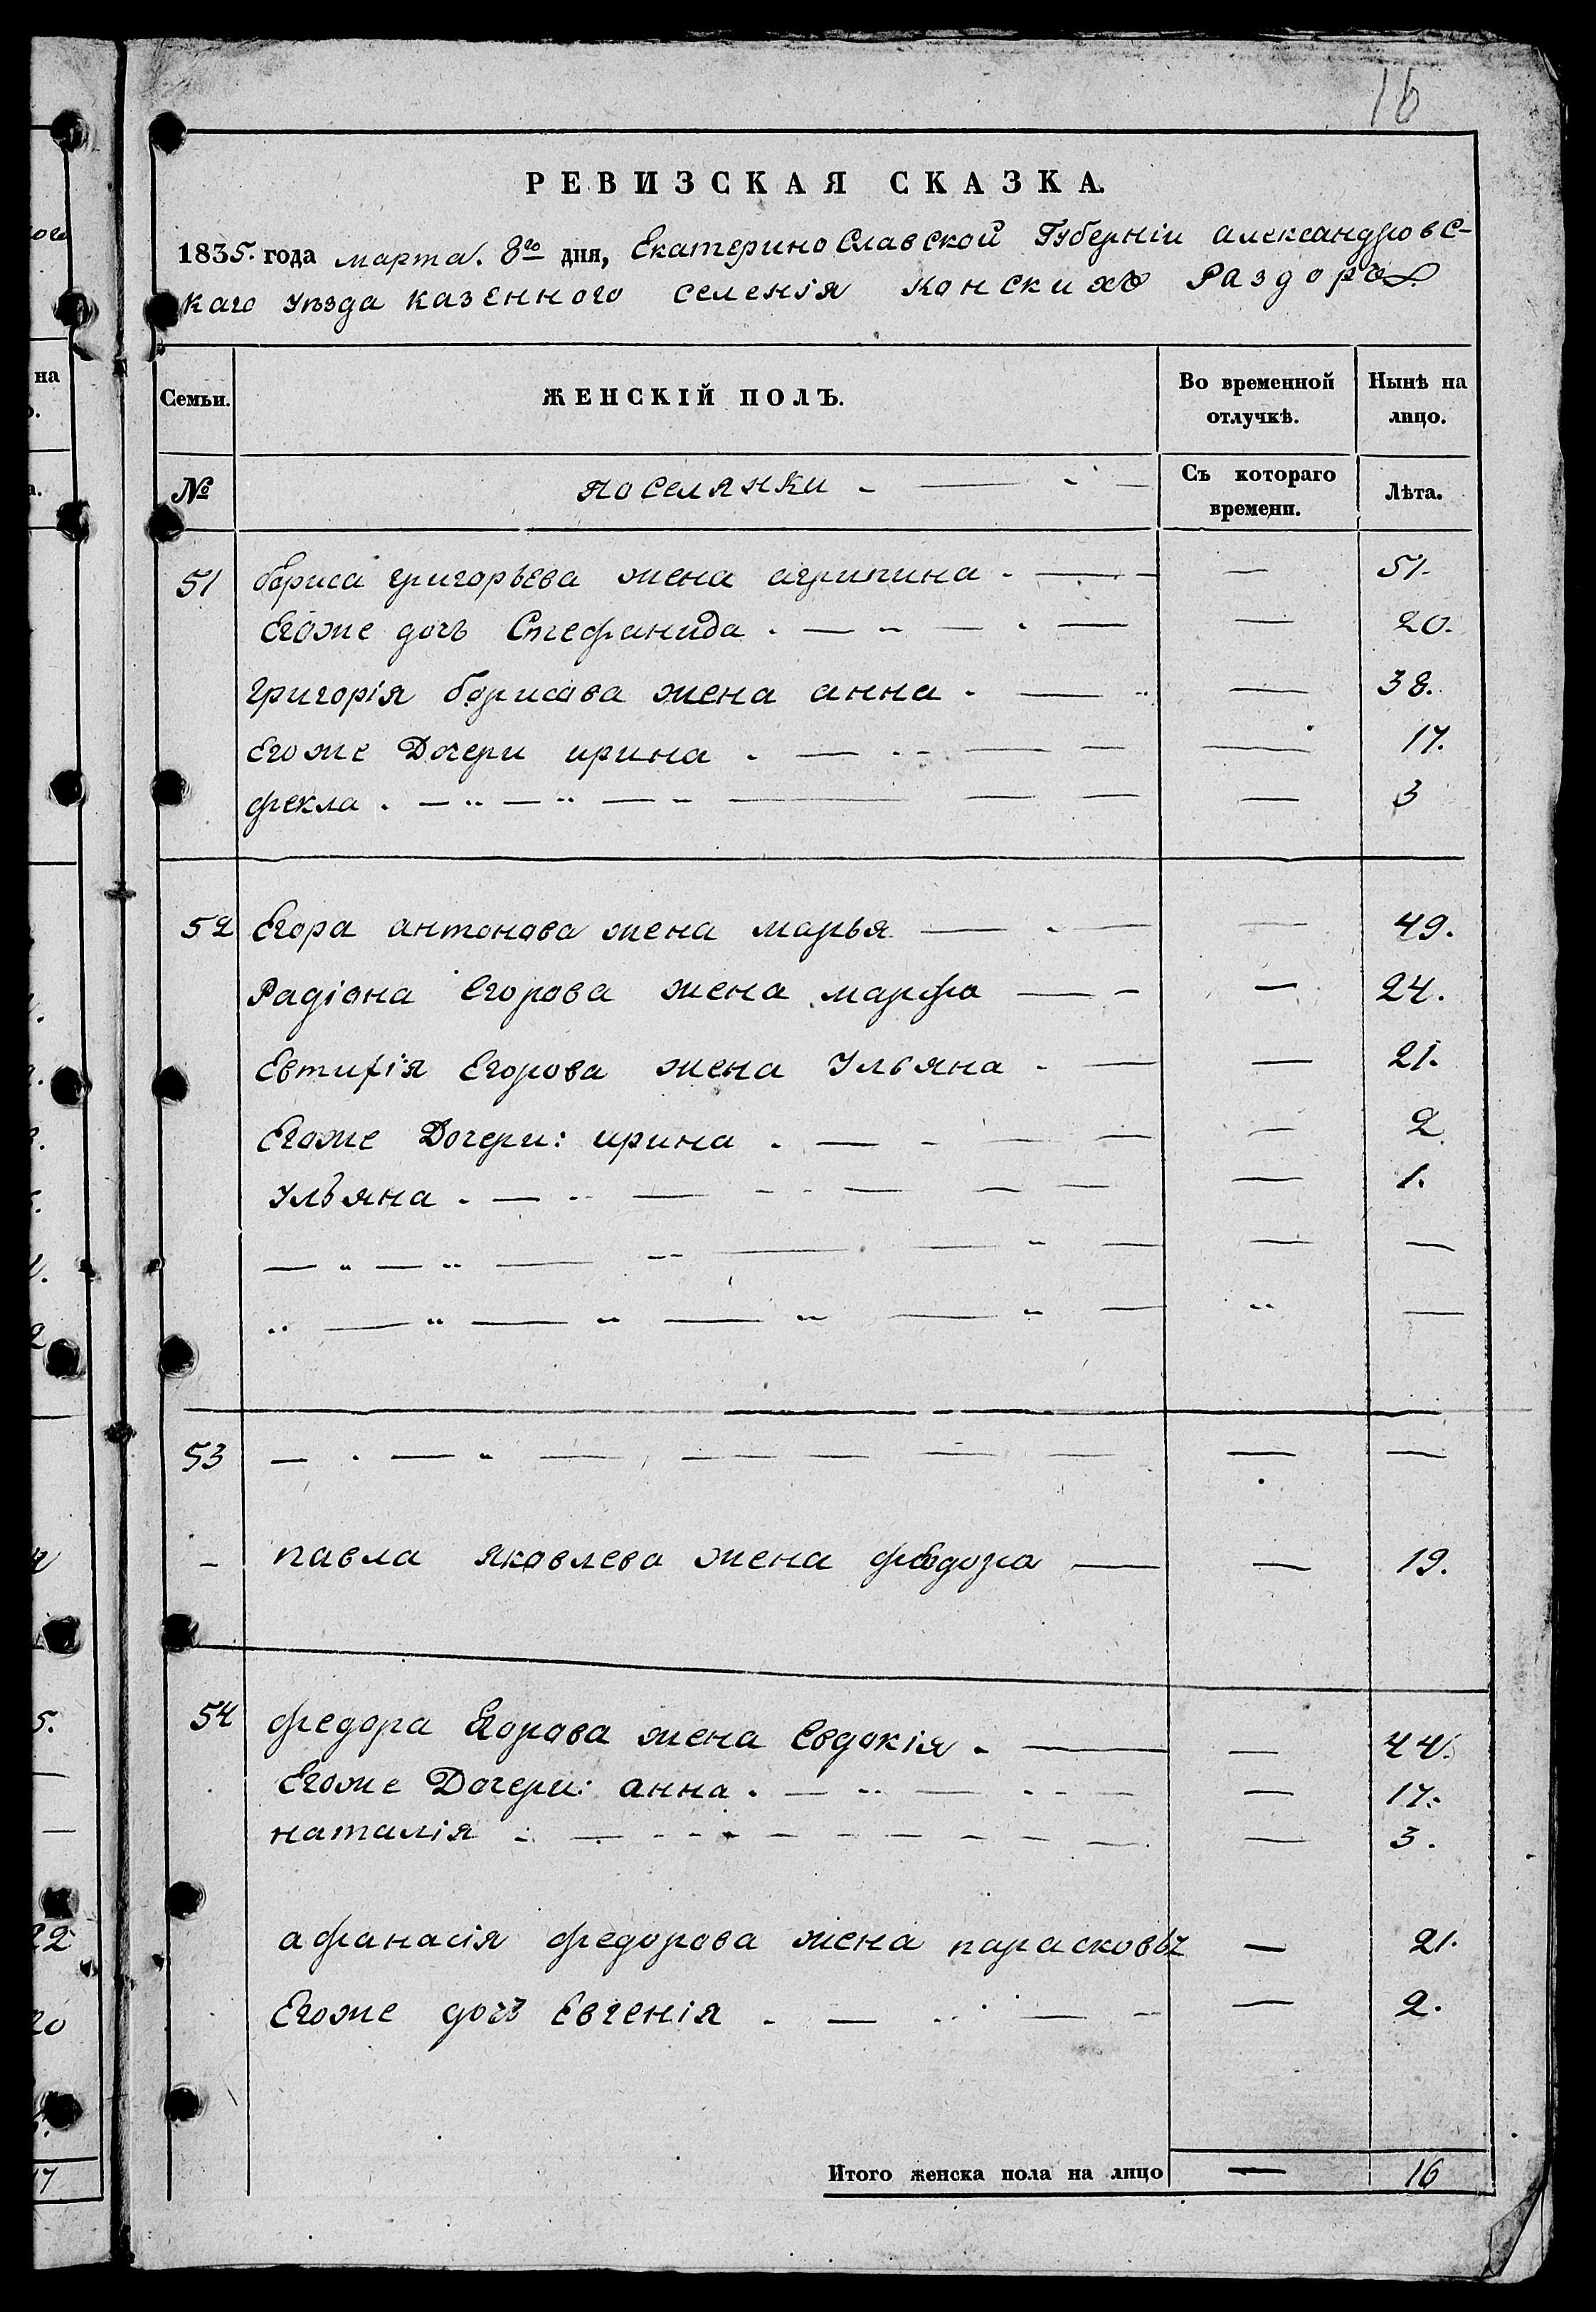 16
РЕВИЗСКАЯ СКАЗКА.
1835. года марта. 8го дня, Екатеринославской Губерніи александровс-
каго уѣзда казенного селенія конскихъ Раздоръ
Семьи. ЖЕНСКІЙ ПОЛЪ. Во временной отлучкѣ. Нынѣ на лицо.
№ поселянки Съ котораго времени. Лѣта.
51 бориса григорьева жена агрипина . — — 51.
Егоже дочь Стефанида . — — 20.
григорія борисова жена анна . — — 38.
егоже Дочери ирина . — — 17.
фекла . — — 3
52 Егора антонова жена марья — — 49.
Радіона егорова жена марфа — — 24.
Евтифія Егорова жена Ульяна . — — 21.
Егоже Дочери: ирина . — — 2
Ульяна . — — 1.
— — —
— — —
53 — — —
— павла яковлева жена феодора — — 19.
54 федора Егорова жена евдокія . — — 44.
Егоже Дочери: анна . — — 17.
наталія . — — 3.
афанасія федорова жена парасковья — 21.
Егоже дочь Евгенія . — — 2.
Итого женска пола на лицо — 16